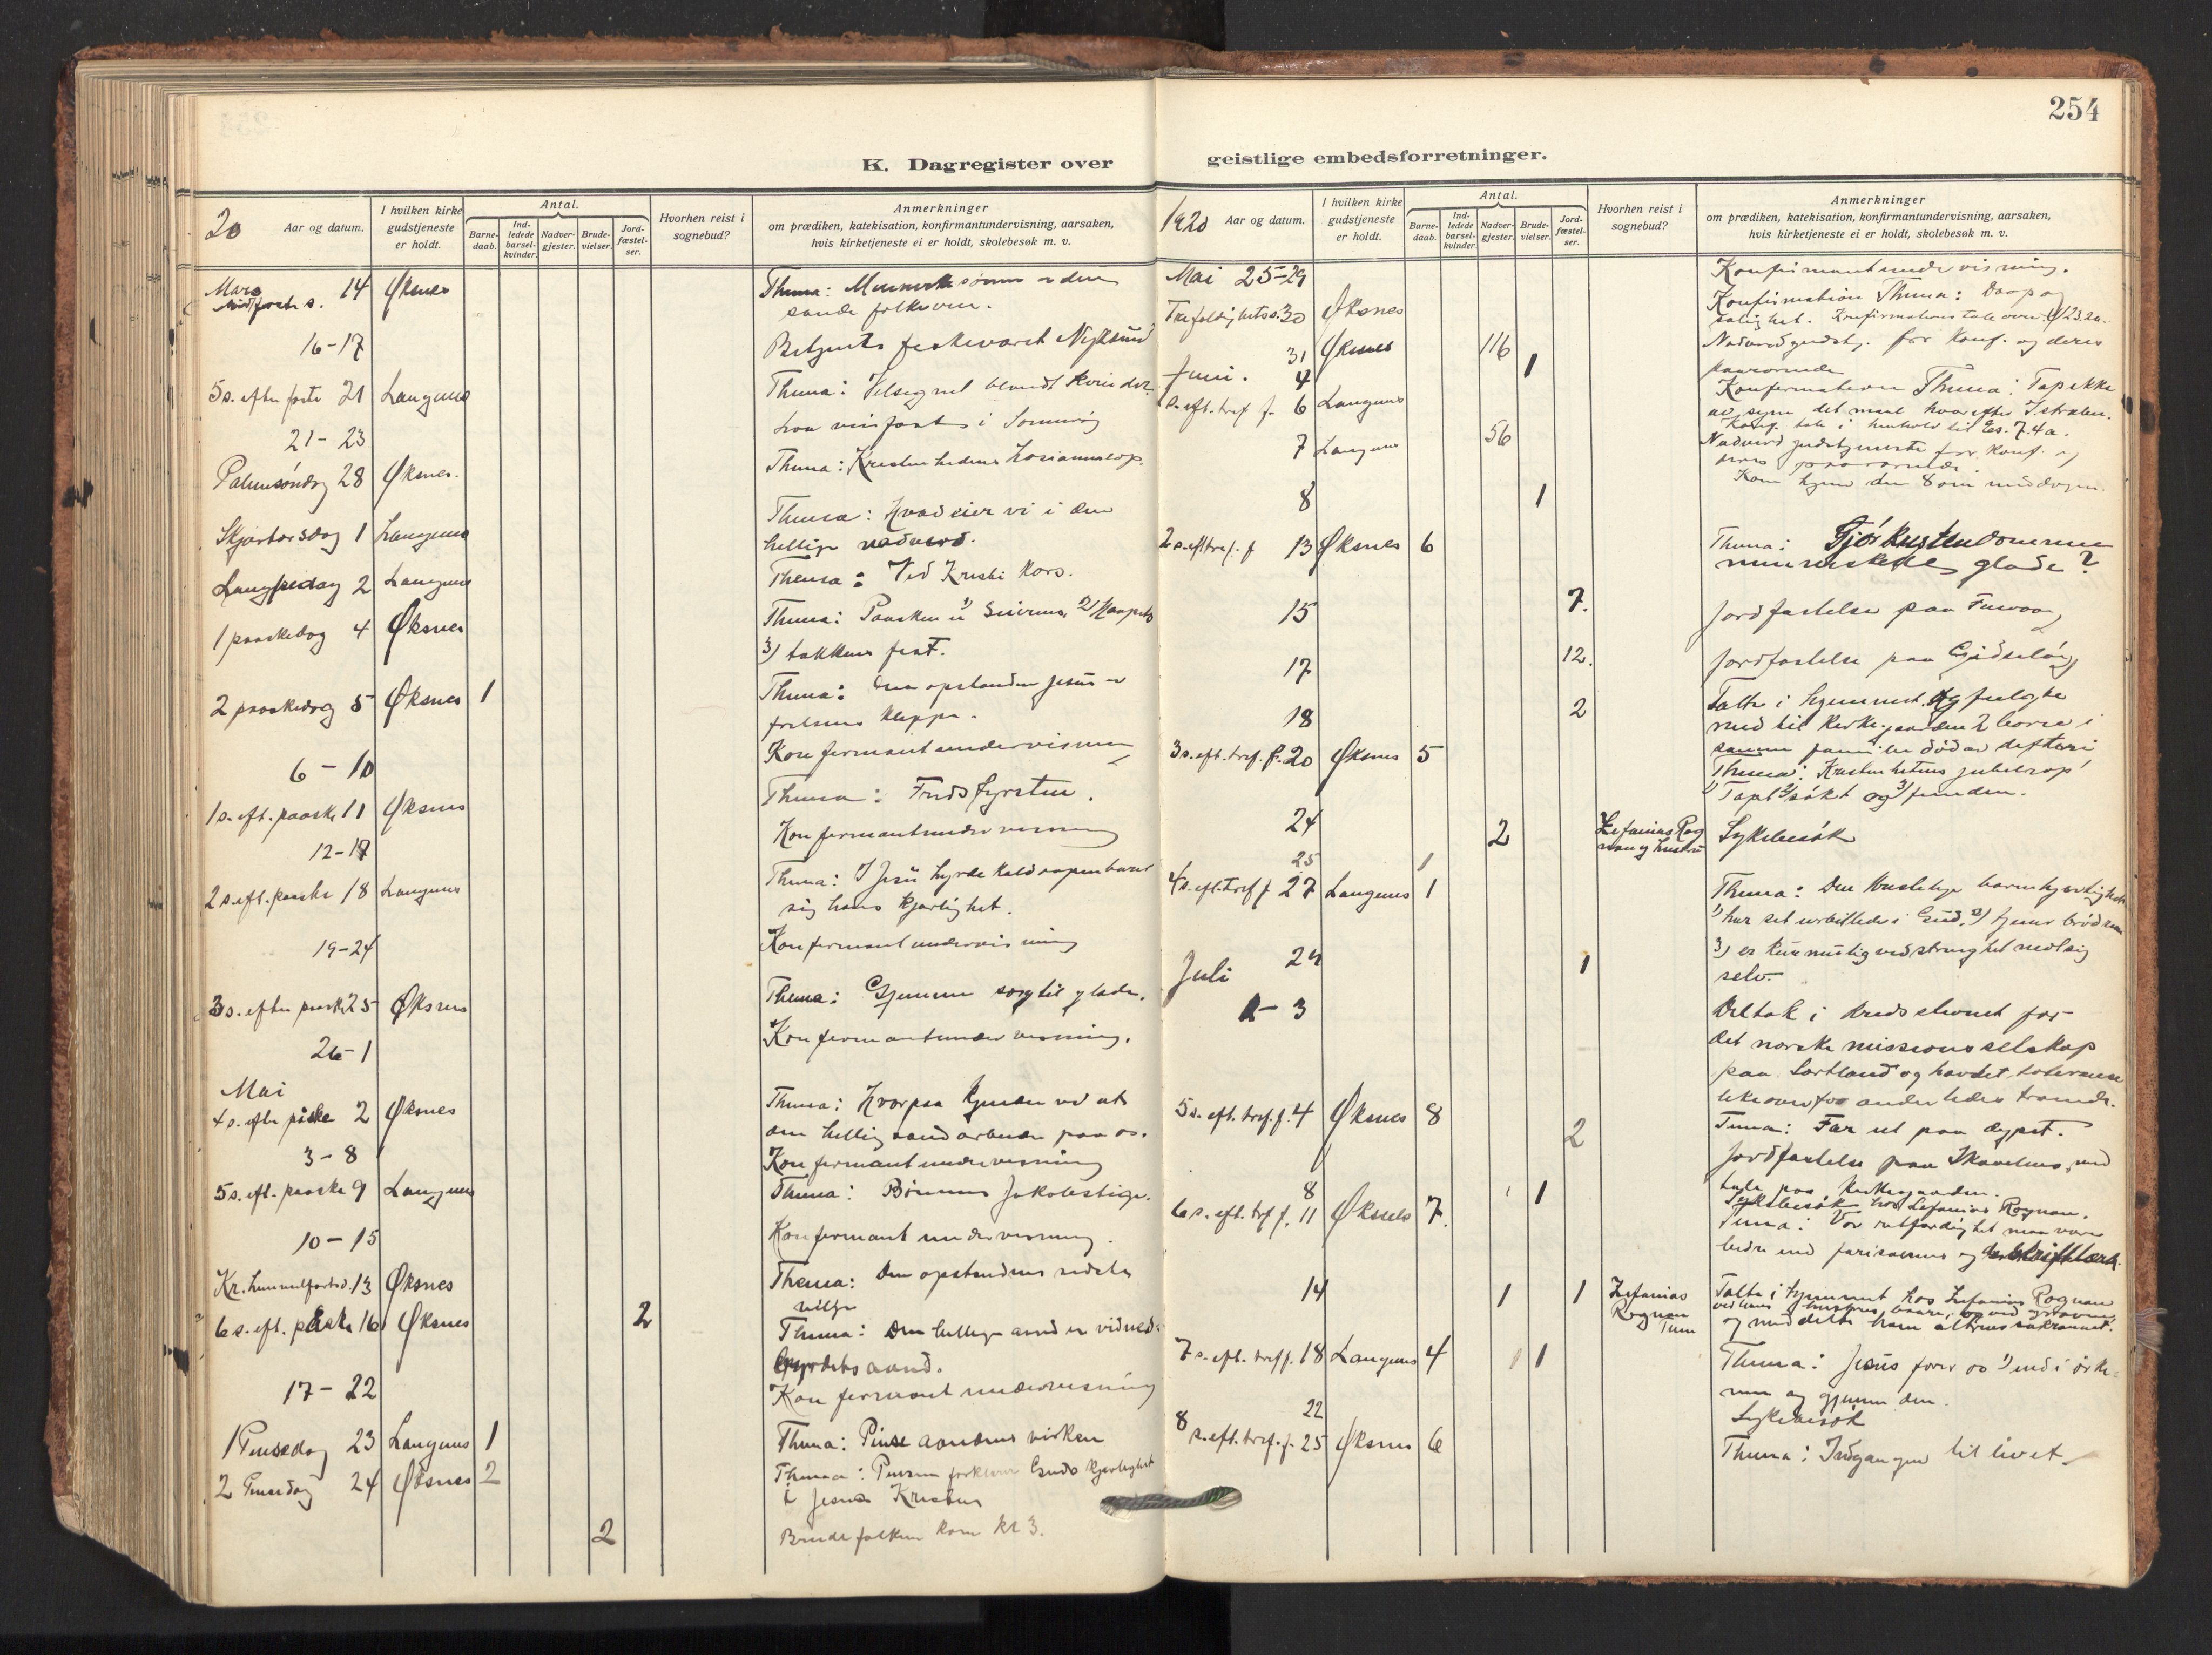 254
K. Dagregister over
geistlige embedsforretninger.
20 Aar og datum.
I hvilken kirke gudstjeneste er holdt.
Antal.
Barne-daab.
Ind-ledede barsel-kvinder.
Nadver-gjester.
Brude-vielser.
Jord-fæstel-ser.
Hvorhen reist i sognebud?
Anmerkninger
om prædiken, katekisation, konfirmantundervisning, aarsaken,
hvis kirketjeneste ei er holdt, skolebesøk m. v.
Mars 14 Øksnes Thema: Menneskesønnen den
sande folkeven.
16-17 Betjente fiskeværet Nyksund
5 s. efter faste 21 Langenes Thema: Velsignet blandt kvinder.
21-23
Palmesøndag 28 Øksnes. Thema: Kristenhedens hosiannarop.
Skjærtorsdag 1 Langenes Thema: Hvad eier vi i den
hellige nadverd.
Langfredag 2 Langenes Thema: Ved Kristi kors.
1 paaskedag 4 Øksnes Thema: Paasken er 1) Seierens 2) Haapets
3) takkens fest.
2 paaskedag 5 Øksnes 1 Thema: Den opstandne Jesus er
frelsens klippe.
6-10 Konfermantundervisning
1 s. eft. paaske 11 Øksnes Thema: Fredsfyrsten.
12-17 Konfermantundervisning
2 s. eft. paaske 18 Langenes Thema: I Jesu hyrdekald aapenbarer
sig hans kjærlighet.
19-24 Konfermantundervisning
3 s. efter paaske 25 Øksnes Thema: Gjennem sorg til glæde.
26-1 Konfermantundervisning.
Mai
4 s. efter påske 2 Øksnes Thema: Hvorpaa kjender vi at
den hellig aand arbeider paa os.
3-8 Konfermantundervisning
5 s. eft. paaske 9 Langenes Thema: Bønnens Jakobstige.
10-15 Konfermantundervisning.
Kr. himmelfartsd. 13 Øksnes Thema: Den opstandnes sidste
vilje
6 s. eft. påske 16 Øksnes 2 Thema: Den hellige aand er vidnes-
byrdets aand.
17-22 Konfermantundervisning
1 Pinsedag 23 Langenes 1 Thema: Pinseaandens virken
2 Pinsedag 24 Øksnes 2 Thema: Pinsen forklarer Guds kjærlighet
i Jesus Kristus
2 Brudefolkene kom kl 3.
1920 Aar og datum.
I hvilken kirke gudstjeneste er holdt.
Antal.
Barne-daab.
Ind-ledede barsel-kvinder.
Nadver-gjester.
Brude-vielser.
Jord-fæstel-ser.
Hvorhen reist i sognebud?
Anmerkninger
om prædiken, katekisation, konfirmantundervisning, aarsaken,
hvis kirketjeneste ei er holdt, skolebesøk m. v.
Mai 25-29 Konfirmantundervisning.
Trefoldighetss. 30 Øksnes Konfirmation Thema: Daap og
salighet. Konfirmations tale over
31 Øksnes 116 Nadverdgudstj. for Konf. og deres
paarørende
Juni. 4 1
1 s. eft. tref. f. 6 Langenes Konfirmation Thema: Tap ikke
av syne det maal hvorefter I stræber.
7 Langenes 56 Nadverd gudstjeneste for konf. og
deres paarørende.
Kom hjem den 8 om middagen.
8 1
2 s. eft tref. f. 13 Øksnes 6 Thema: Gjør kristendommen
menneskene glade?
15 7. Jordfæstelse paa
17 12. Jordfæstelse paa
18 2 Talte i hjemmet og fulgte
med til kirkegaarden 2 barn i
samme familie død av difteri
3 s. eft. tref. f. 20 Øksnes 5 Thema: Kristenhetens jubelrop!
1) Tapt 2) søkt og 3) funden.
24 2 Zefanias Rog
nan og hustru Sykebesøk
25 1
4 s. eft. tref f 27 Langenes 1 Thema: Den kristelige barmhjertighet
1) har set urbilledet i Gud. 2)
3) er kun mulig ved strenghet mot sig
selv.
29 1
Juli
1-3 Deltok i kredsstevnet for
det norske missionsselskap
paa Sortland og
5 s. eft. tref. f. 4 Øksnes 8 Tema: Far ut paa dypet.
2 Jordfæstelse paa Skavelnes, med
tale paa kirkegaarden.
8 1 Sykebesøk hos Zefanias Rognan.
6 s. eft. tref f. 11 Øksnes 7. Tema: Vor retfærdighet maa være
bedre end farisæernes og de skriftlærde.
14 1 1 Zefanias
Rognan
Talte i hjemmet hos Zefanias Rognan
og meddelte ham alterens sakrament.
7 s. eft. tref f. 18 Langenes 4 1 1 Thema: Jesus fører os 1) ind i ørke-
nen og gjennem den.
22 Sykebesøk
8 s. eft. tref. f. 25 Øksnes 6 Thema: Indgangen til livet.